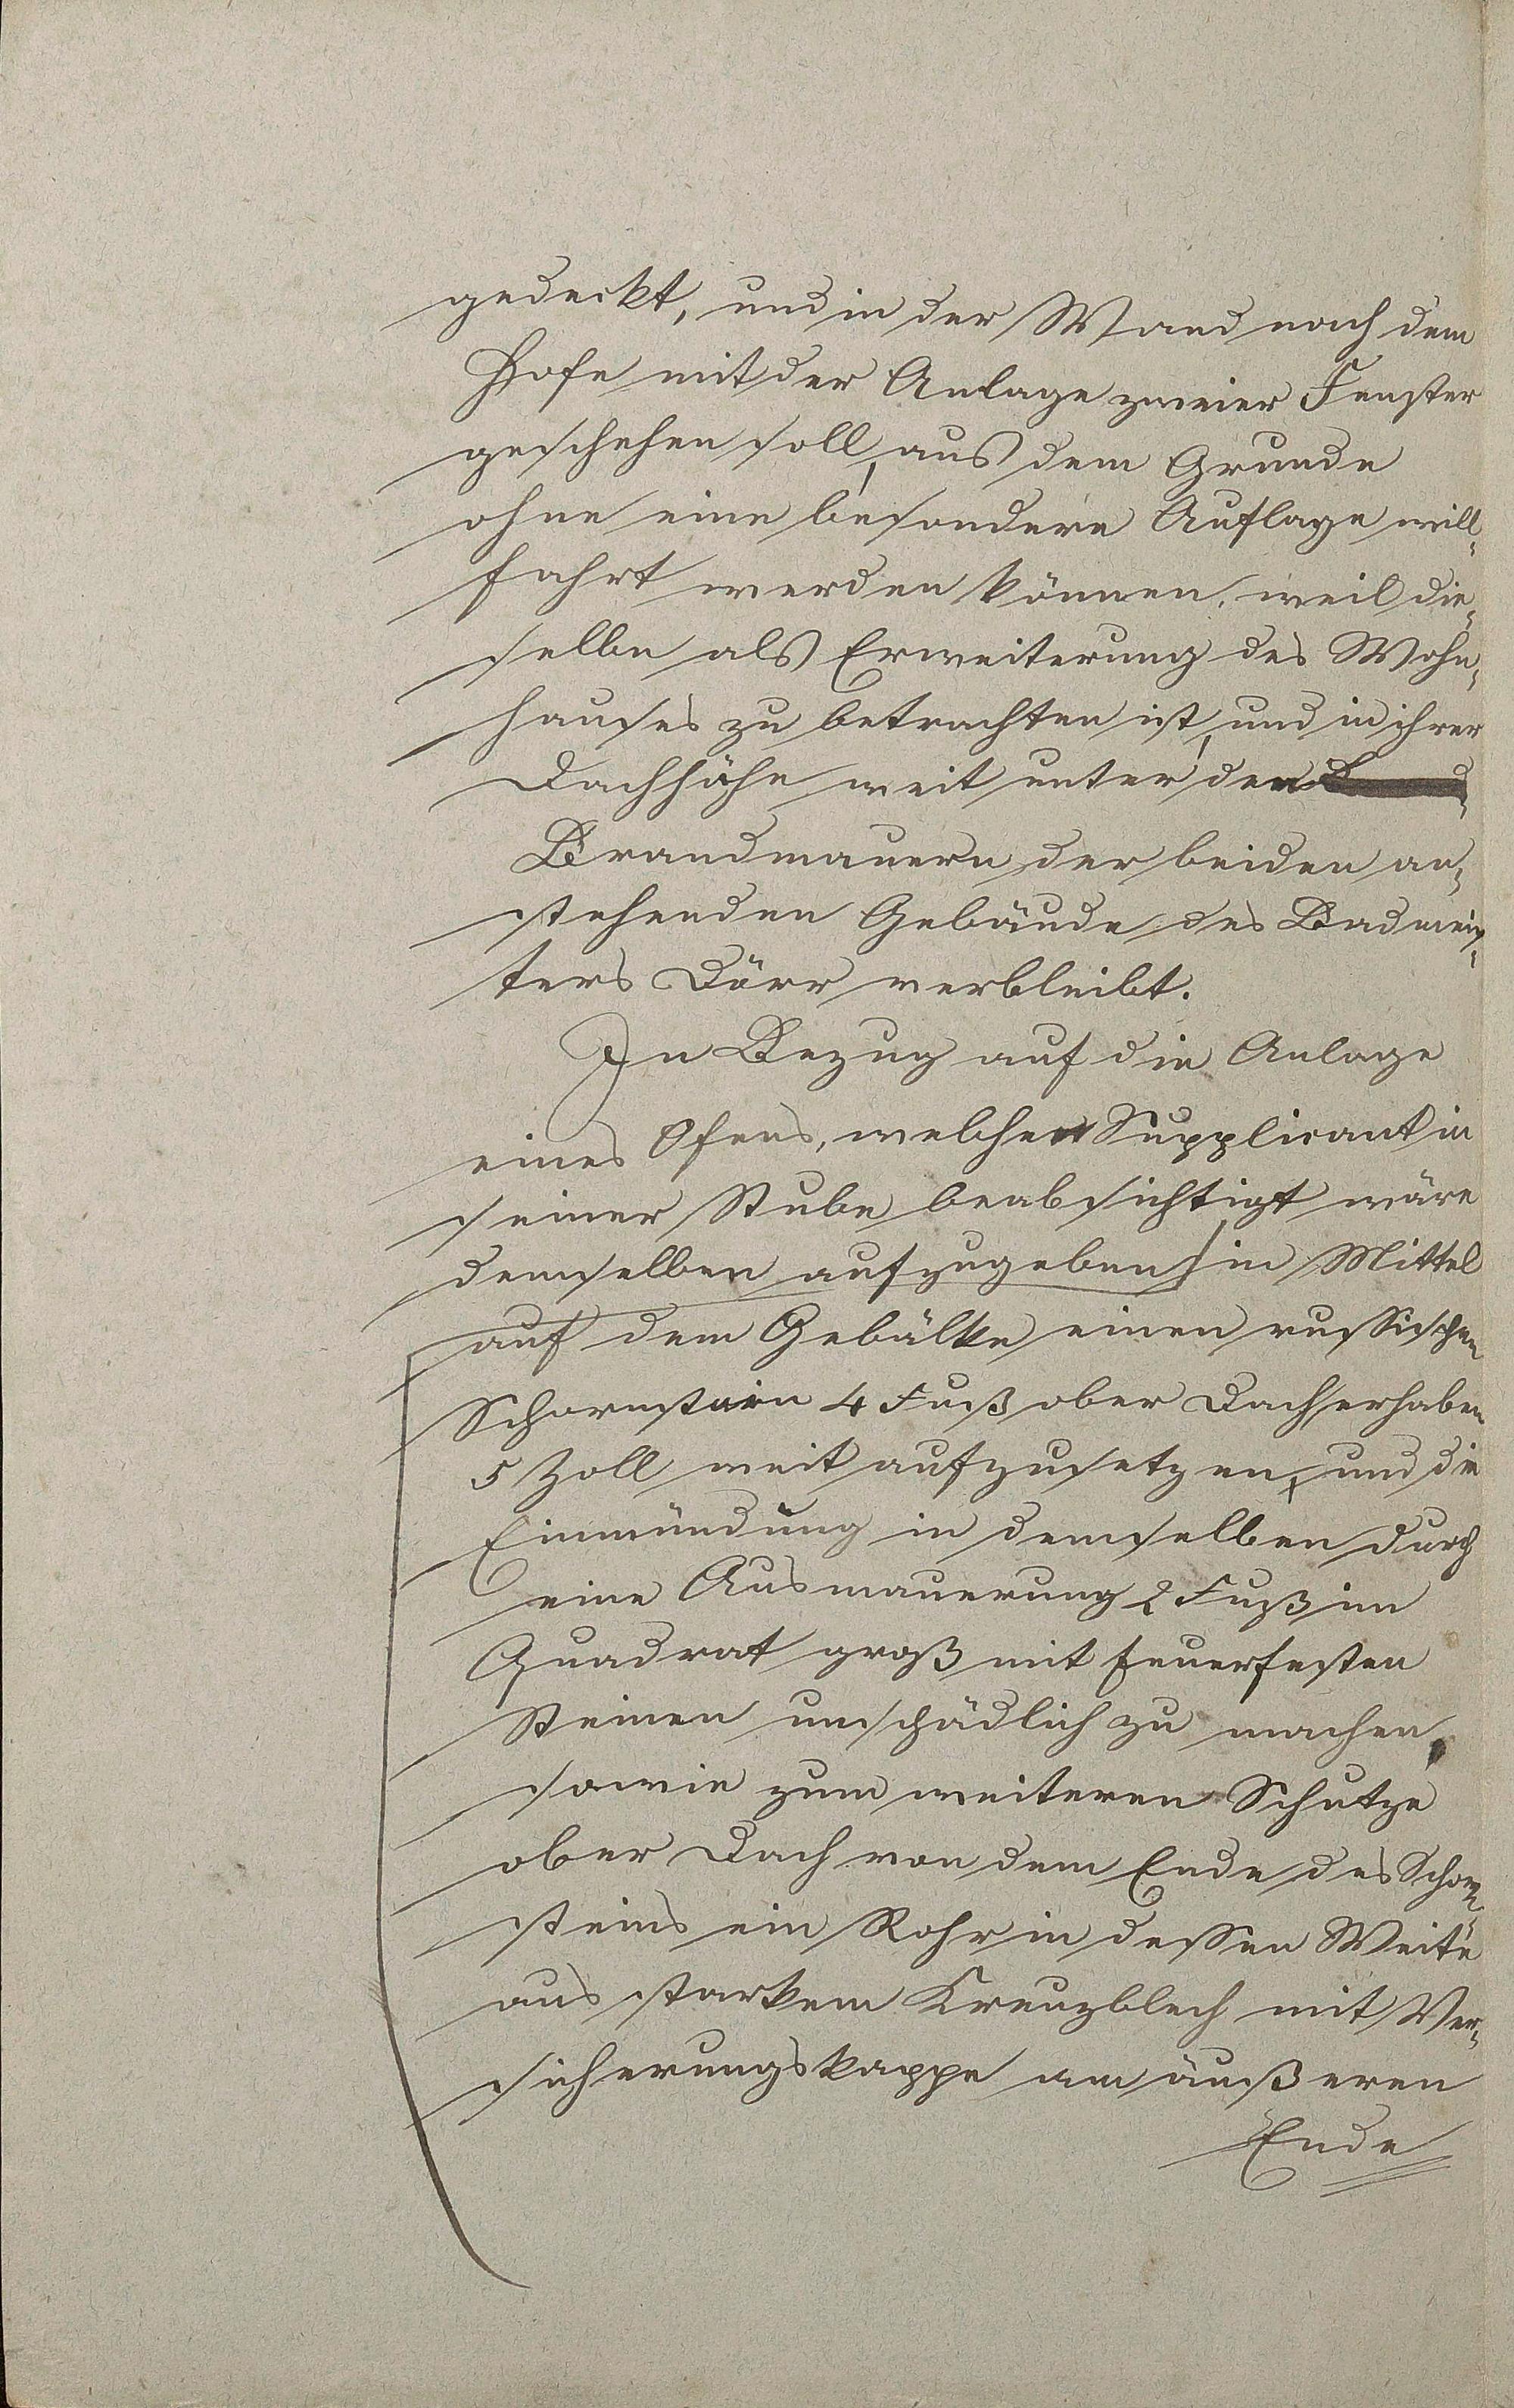 gedeckt, und in der Wand nach dem
Hofe mit der Anlage zweier Fenster
geschehen soll, aus dem Grunde
ohne eine besondere Auflage will-
fahrt werden können, weil die-
selbe als Erweiterung des Wohn-
hauses zu betrachten ist, und in ihrer
Dachhöhe weit unter den
Brandmauern der beiden an-
stehenden Gebäude des Badmeis-
ters Dörr verbleibt.
In Bezug auf die Anlage
eines Ofens, welchen Supplicant in
seiner Stube beabsichtigt wäre
demselben aufzugeben, in Mittel
auf dem Gebälke einen russischen
Schornstein 4 Fuß ober Dach erhaben
5 Zoll weit aufzusetzen, und die
Einmündung in demselben durch
eine Ausmauerung 2 Fuß im
Quadrat groß mit feuerfesten
Steinen unschädlich zu machen,
sowie zum weiteren Schutze
ober Dach von dem Ende des Schorn-
steins ein Rohr in dessen Weite
aus starkem Kreuzblech mit Ver-
sicherungskappe am äußeren
Ende